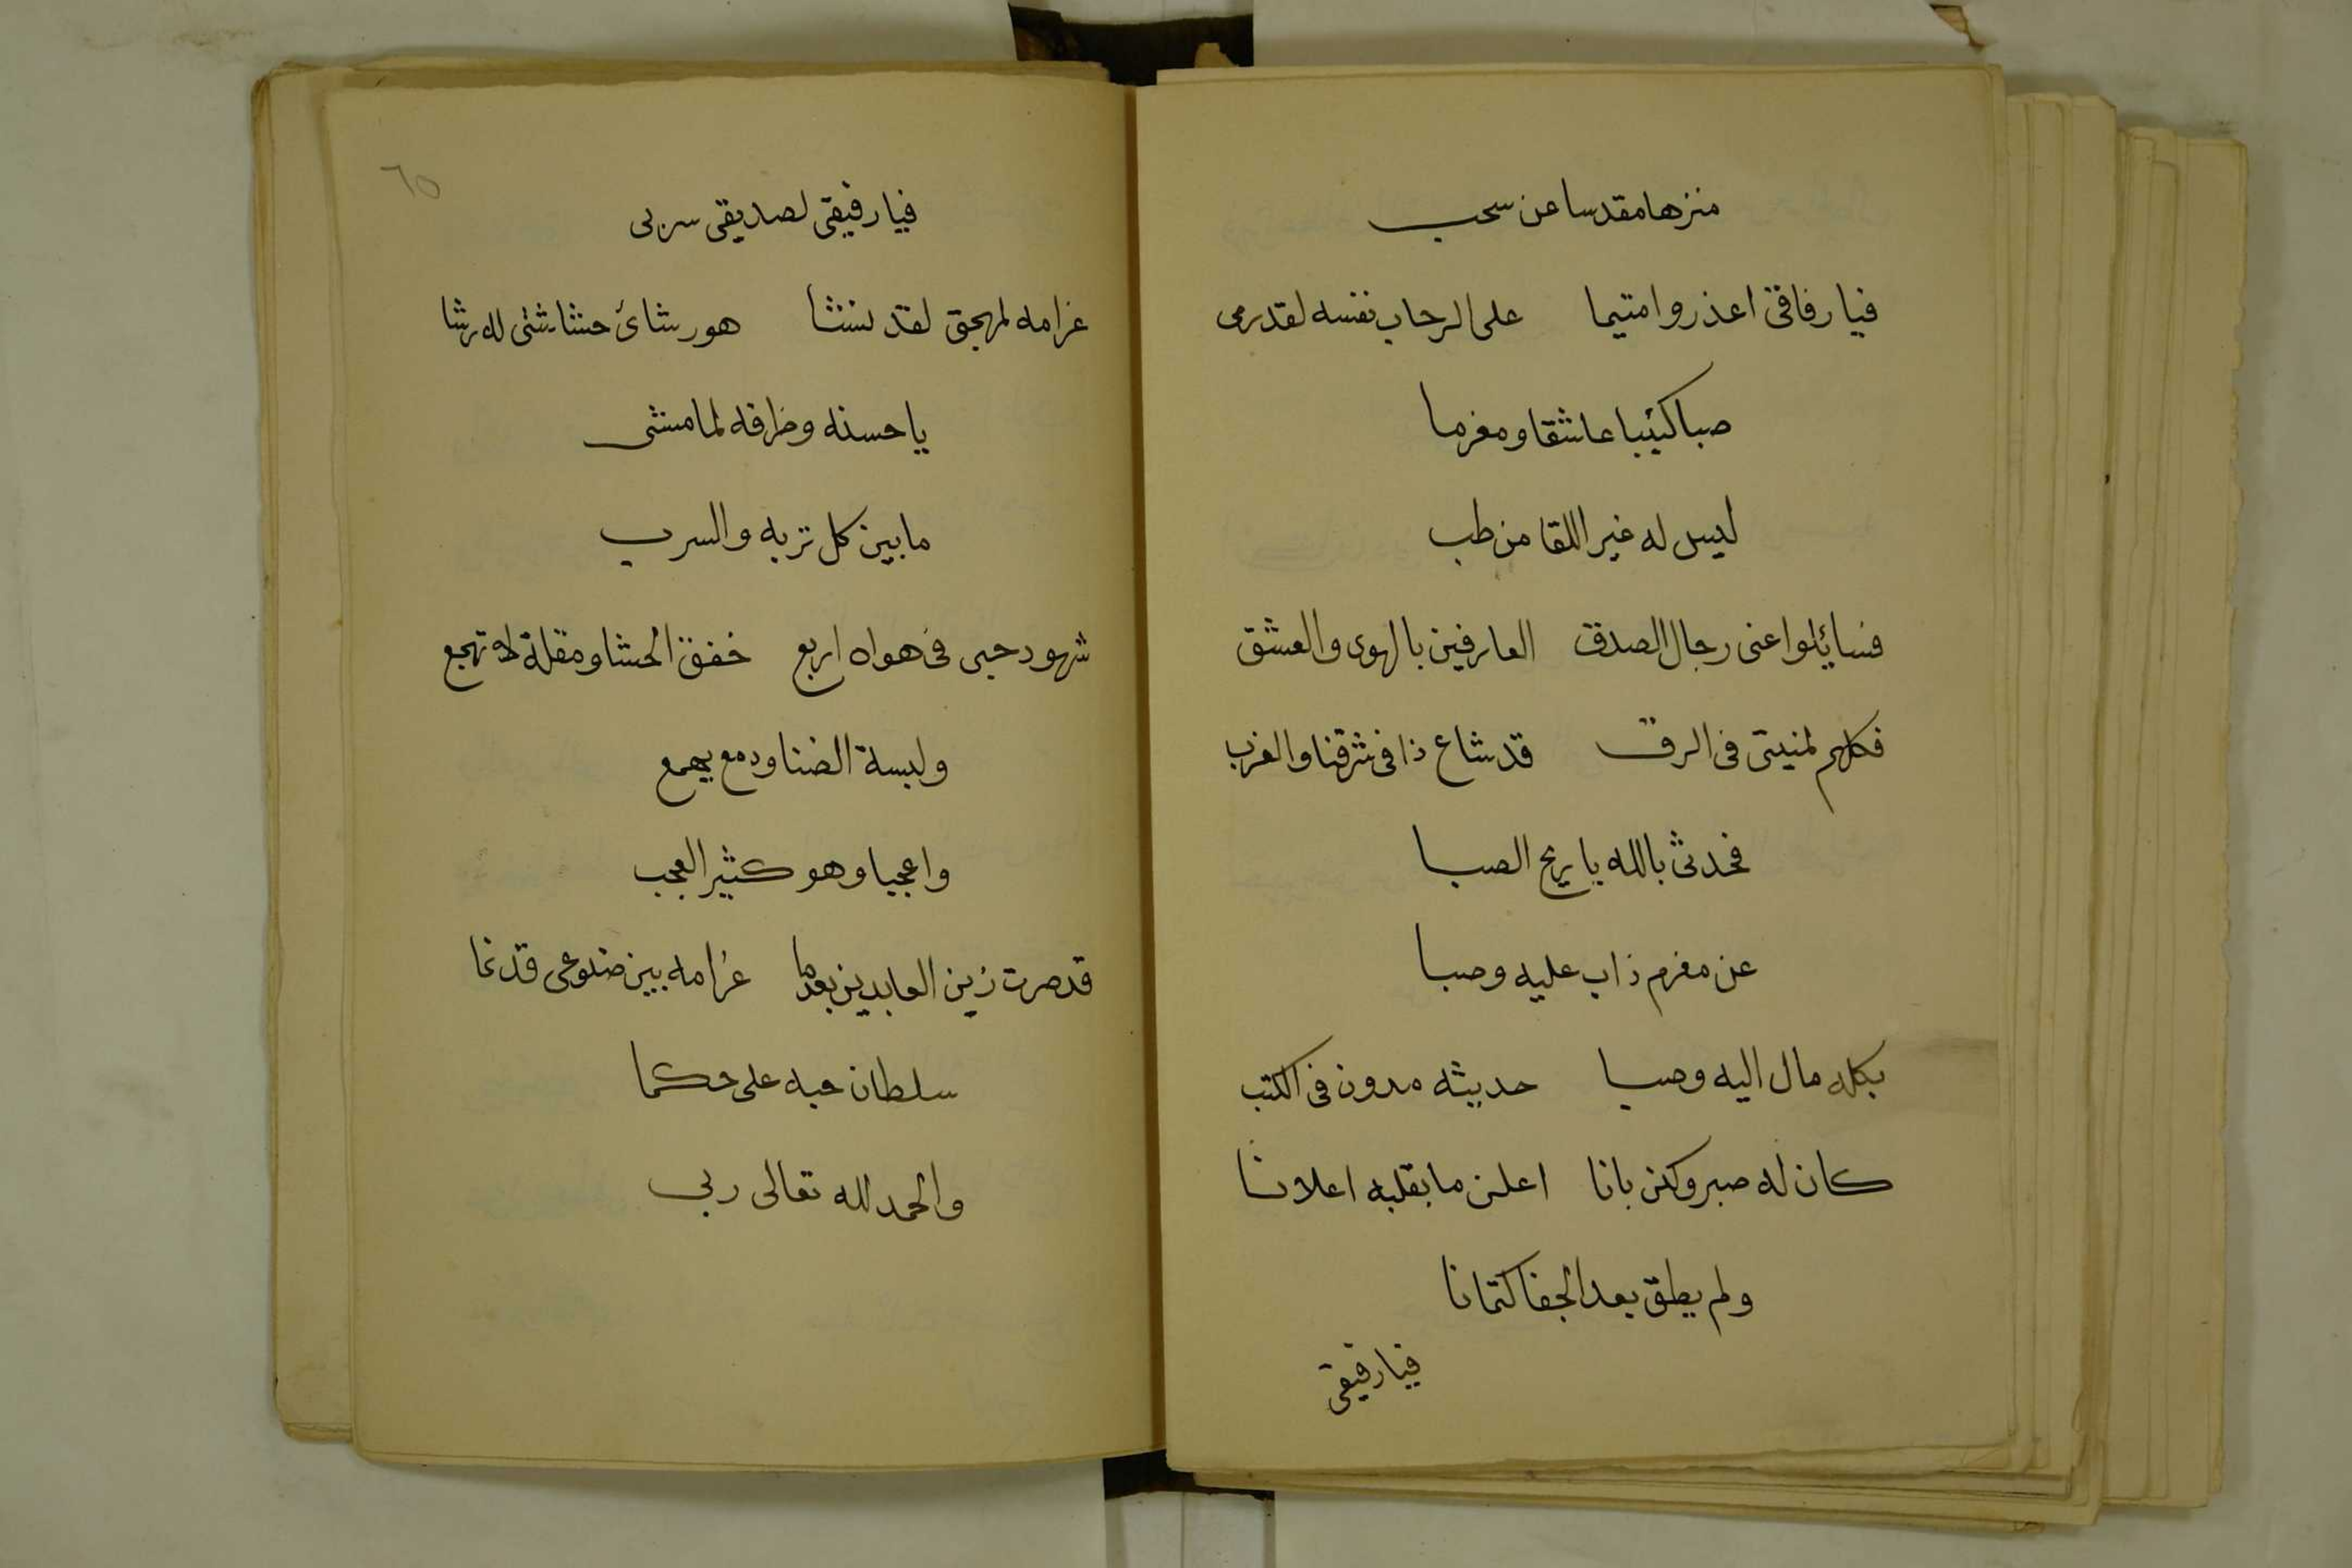 منزها مقدسا عن سحب
فيا رفاقى اعذروا متيما على الرحاب نفسه لقد رمى
صبا كئيبا عاشقا ومغرما
ليس له غير اللقا من طب
فسايلوا عنى رجال الصدق العارفين بالهوى والعشق
فكلهم لمنيتى فى الرق قد شاع ذا فى شرقنا والغرب
فحدث بالله يا ريح الصبا
عن مغرم ذاب عليه وصبا
بكله مال اليه وصبا حديثه مدون فى الكتب
كان له صبر وكن بانا اعلن ما بقلبه اعلانا
ولم يطق بعد الجفا كتمانا
فيا رفيقى
٦٥
فيا رفيقى لصديقى سر بى
غرامه لمهجتى لقد نشا هو رشائ حشاشتى له رشا
يا حسنه وظرفه لما مشى
ما بين كل تربه والسرب
شهود حبى فى هواه اربع خفق الحشا ومقلة لا تهجع
ولبسة الضنا ودمع يهمع
واعجبا وهو كثير العجب
قد صرت زين العابدين بعد ما غرامه بين ضلوعى قد نما
سلطان حبه على حكما
والحمد لله تعالى ربى